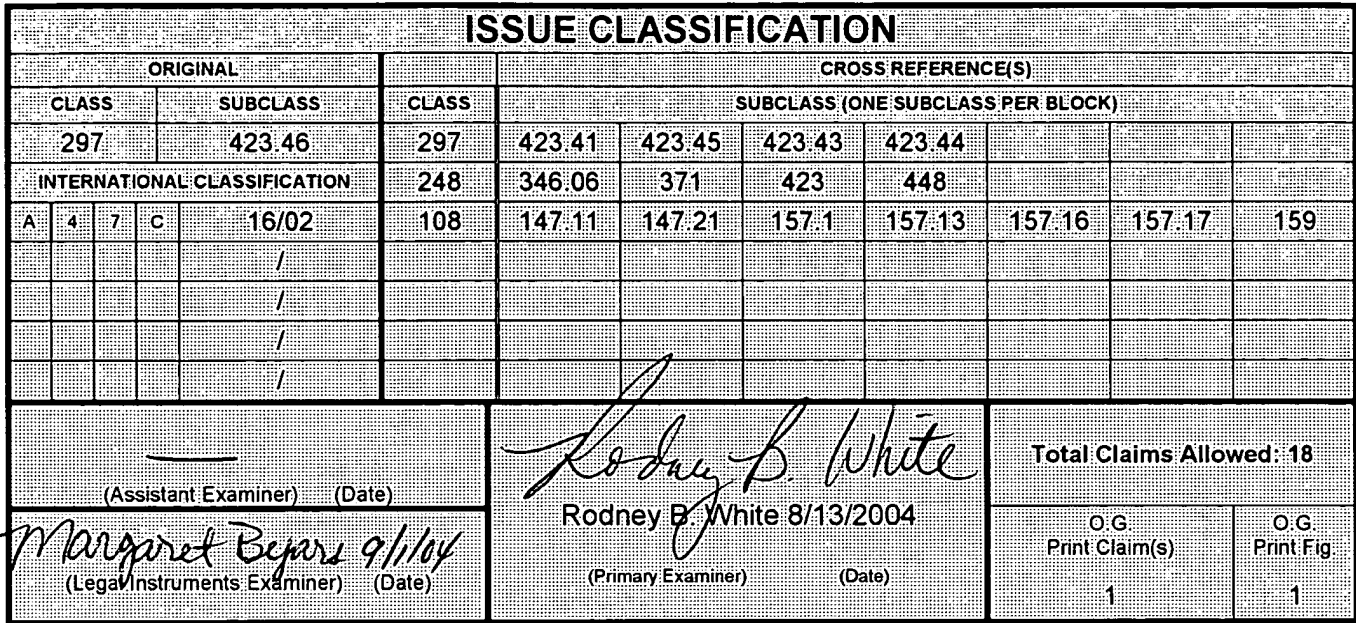 ISSUE CLASSIFICATION
ORIGINAL CROSS REFERENCE(S)
CLASS SUBCLASS CLASS SUBCLASS (ONE SUBCLASS PER BLOCK)
297 423.46 297 423.41 423.45 423.43 423.44
INTERNATIONAL CLASSIFICATION 248 346.06 371 423 448
A 4 7 C 16/02 108 147.11 147.21 157.1 157.13 157.16 157.17 159
/
/
/
/
(Assistant Examiner) (Date)
Margaret Byars 9/1/04
(Legal Instruments Examiner) (Date)
Rodney B. White
Rodney B. White 8/13/2004
(Primary Examiner) (Date)
Total Claims Allowed: 18
O.G. Print Claim(s)
1
O.G. Print Fig.
1